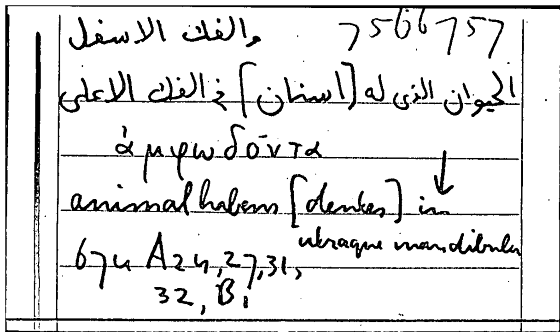 والفك الاسفل
الحيوان الذى له [اسنان] فى الفك الاعلى
ἀμφωδόντα
animal habens [dentes] in
utraque mandibula
674 A24, 27, 31,
32, B1